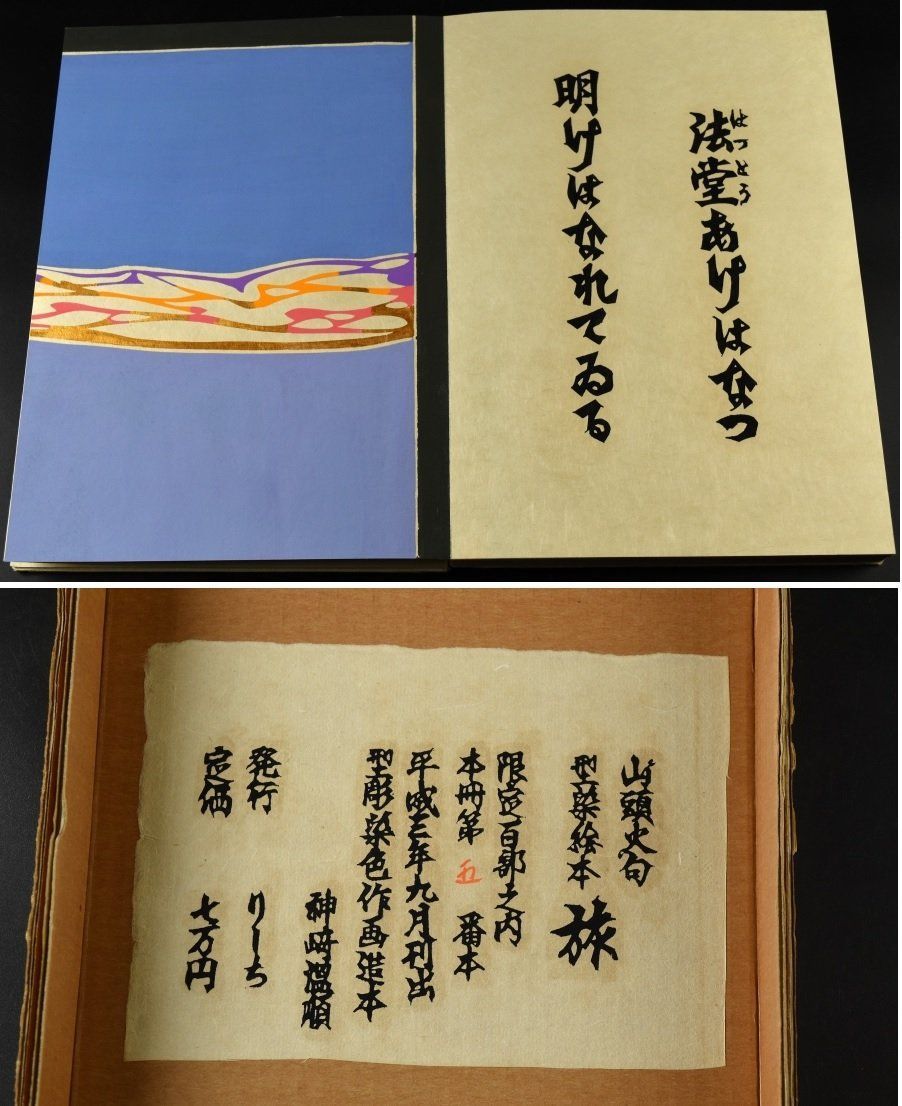 法堂あけはなつ
はつとう
明けはなれてゐる
山頭火句
型染絵本 旅
限定百部之内
本冊第 五 番本
平成三年九月刊出
型彫染色作画造本
神崎温順
発行 りーち
定価 七万円